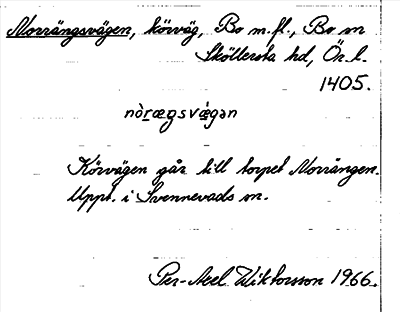 Norrängsvägen, körväg, Bo m.fl., Bo sn
Sköllersta hd, Ör. l.
1405.
nòræŋsvǽgən
Körvägen går till torpet Norrängen.
Uppt. i Svennevads sn.
Per-Axel Wiktorsson 1966.